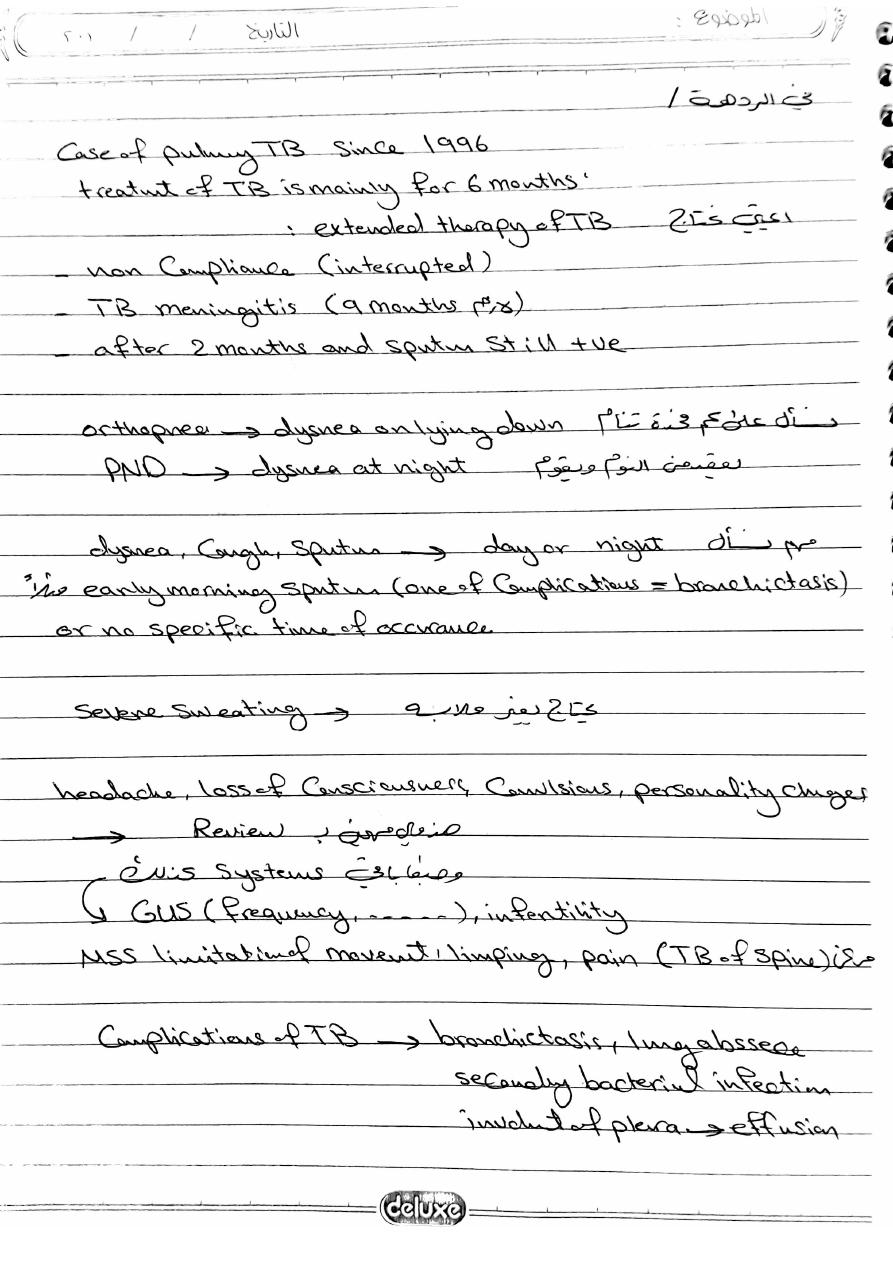 الموضوع :
التاريخ / / ٢٠١
في الردهة /
Case of pulmory TB since 1996
treatmt of TB is mainly for 6 months
: extended therapy of TB
- non Compliance (interrupted)
- TB meningitis (9 months لازم)
- after 2 months and sputum still +ve
orthopnea → dysnea on lying down نسأل على كم مخدة تنام
PND → dysnea at night يفيق من النوم ويقوم
dysnea, Cough, Sputum → day or night نسأل
مثلاً early morning sputum (one of Complications = bronchictasis)
or no specific time of occurance
severe sweating → يحتاج يغير ملابسه
headache, loss of Consciousness, Convulsions, personality changes
→ Review
systems باقي
GUS (frequency, ------), infertility
MSS limitation of movemt, limping, pain (TB of spine) مثلاً
Complications of TB → bronchictasis, lung abssece
secondry bacterial infection
involvmt of plera → effusion
deluxe